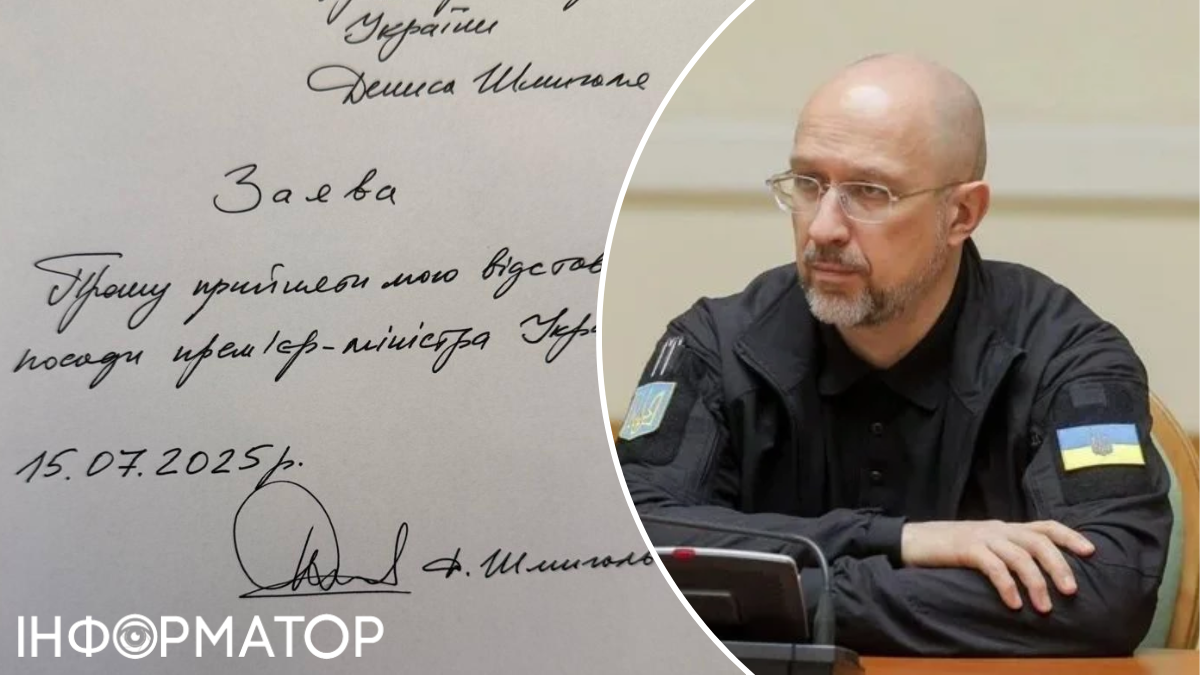 України
Дениса Шмигаля
Заява
Прошу прийняти мою відстав
посади прем'єр-міністра Укра
15.07.2025р.
Д. Шмигаль
ІНФОРМАТОР